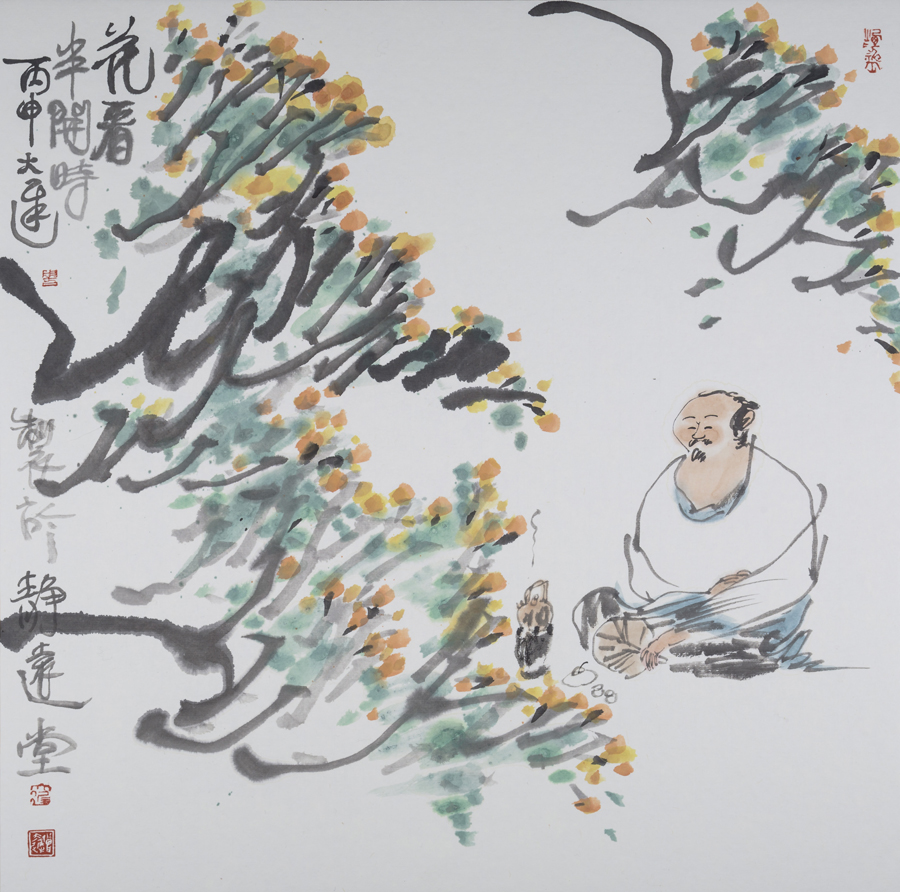 花看
半開時
丙申大運
製於靜遠堂